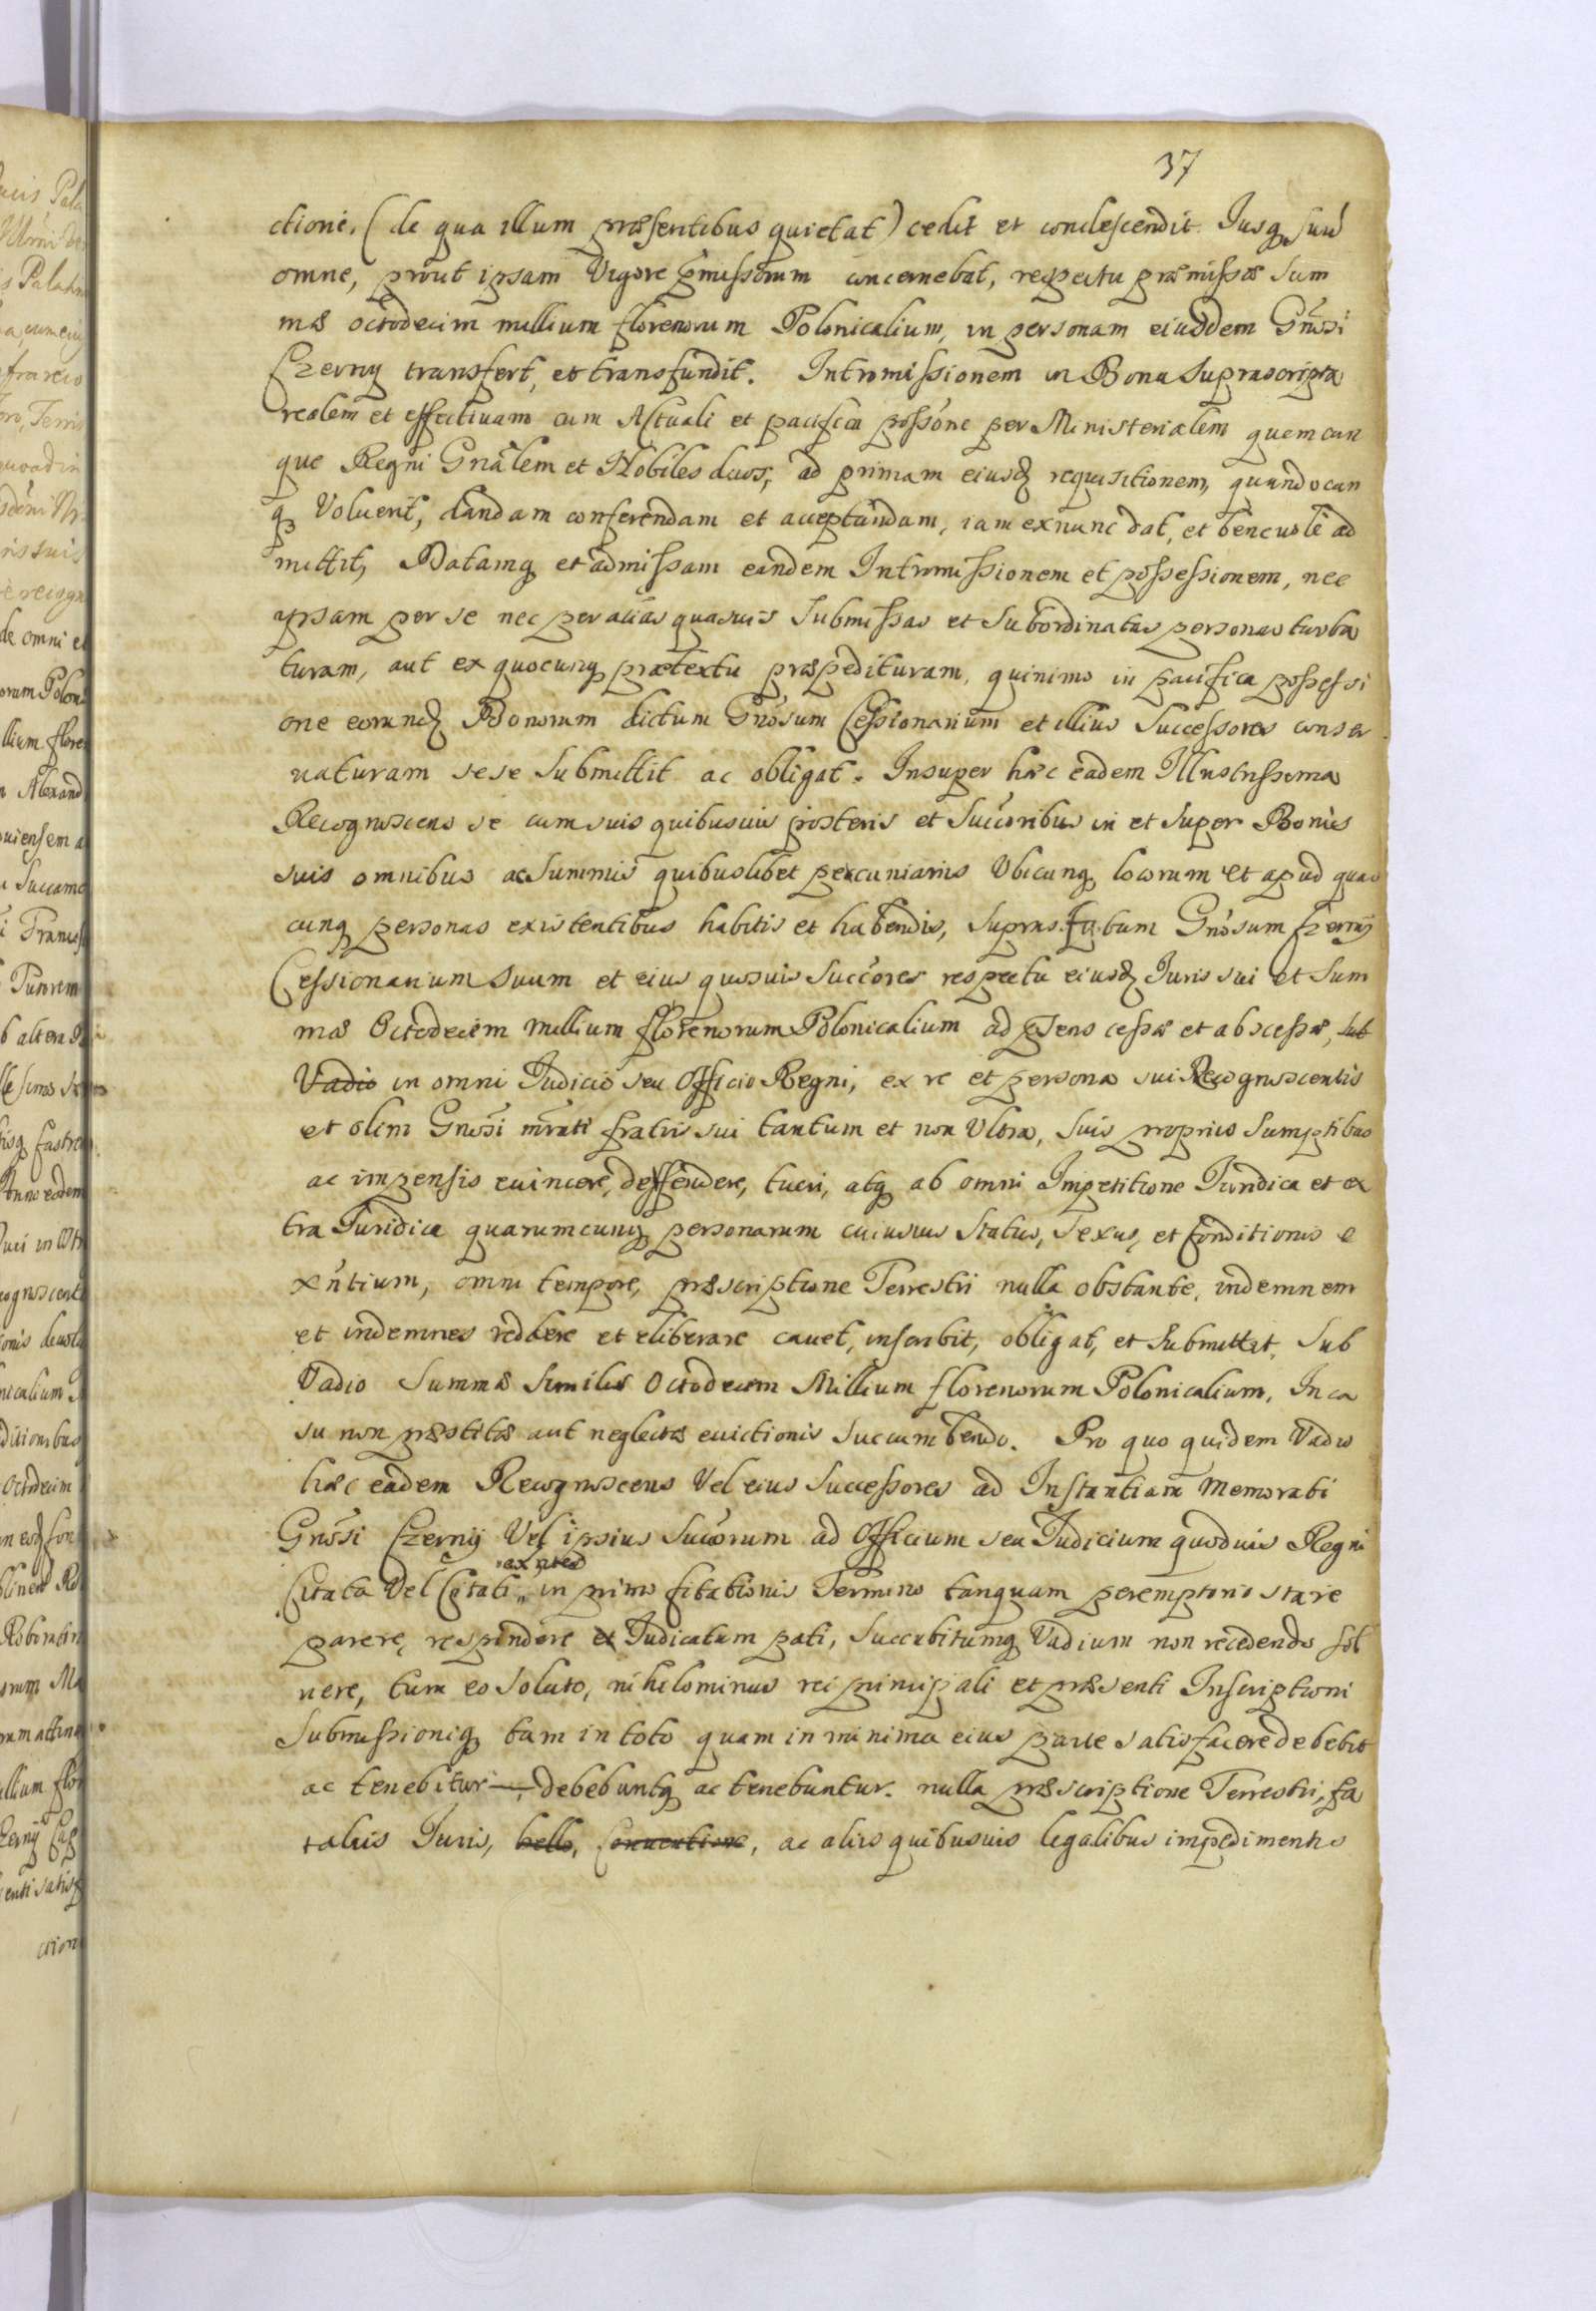 37
ctione, (de qua illum præsentibus quietat) cedit et condescendit. Jusq suū
omne, prout ipsam Vigore pmissorum concernebat, respectu præmissæ Sum
mæ octodecim millium florenorum Polonicalium, in personam eiusdem Gnosi
Czerny transfert, et transfundit. Intromissionem in Bona Suprascripta
realem et effectivam cum Actuali et pacifica possōne per Ministerialem quemcun
que Regni Gnālem et Nobiles duos, ad primam eiusd requisitionem, quandocun
q Voluerit, dandam conferendam et acceptandam, iam exnunc dat, et bencuole ad
mittit, Datamq et admissam eandem Intromissionem et possessionem, nec
ipsam per se nec per alias quasuis Submissas et Subordinatas personas turba
turam, aut ex quocunq prætextu præpedituram, quinimo in pacifica possessi
one eorund Bonorum dictum Gnōsum Cessionarium et illius Successores conser
uaturam sese Submittit ac obligat. Insuper hæc eadem Illustrissima
Recognoscens se cum suis quibusuis posteris et Succoribus in et Super Bonis
suis omnibus ac Summis quibuslibet pecuniariis Ubicunq locorum et apud quas
cunq personas existentibus habitis et habendis, supras fatum Gnōsum Czerny
Cessionarium suum et eius quosuis Succores respectu eiusd Juris sui et Sum
mæ Octodecim Millium florenorum Polonicalium ad psens cessæ et abscessæ, sub
Vadio in omni Judicio seu Officio Regni, ex re et persona sui Recognoscentis
et olim Gnosi mrati fratris sui tantum et non Ultra, Suis propriis Sumptibus
ac impensis euincere, deffendere, tueri, atq ab omni Impetitione Juridica et ex
tra Juridica quarumcunq personarum cuiusuis Status, Sexus, et Conditionis e
xn̄tium, omni tempore, præscriptione Terrestri nulla obstante, indemnem
et indemnes reddere et eliberare cauet, inscribit, obligat, et Submittit, Sub
Vadio Summæ Similis Octodecim Millium florenorum Polonicalium, In ca
su non præstitæ aut neglectæ euictionis Succumbendo. Pro quo quidem Vadio
hæc eadem Recognoscens Vel eius Successores ad Instantiam Memorati
Gnōsi Czerny Vel ipsius Succorum ad Officium seu Judicium quoduis Regni
Citata Vel Citati in primo Citationis Termino tanquam peremptorio stare
parere, respondere et Judicatum pati, Succubitumq Vadium non recedendo sol
uere, tum eo Soluto, nihilominus rei principali et præsenti Inscriptioni
Submissioniq tam in toto quam in minima eius parte satisfacere debebit
ac tenebitur, debebuntq ac tenebuntur. nulla præscriptione Terrestri, fa
taliis Juris, bello, Conuentione, ac aliis quibusuis legalibus impedimentis